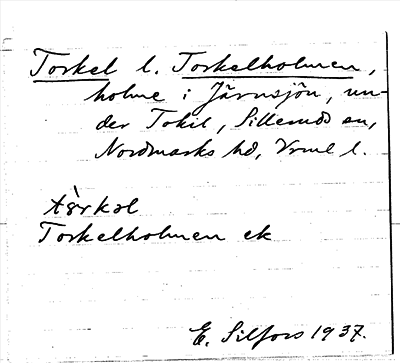 Torkel l. Torkelholmen,
holme i Järnsjön, un-
der Tokil, Sillerud sn,
Nordmarks hd, Vrml l.
Torkelholmen ek
E. Silfors 1937.